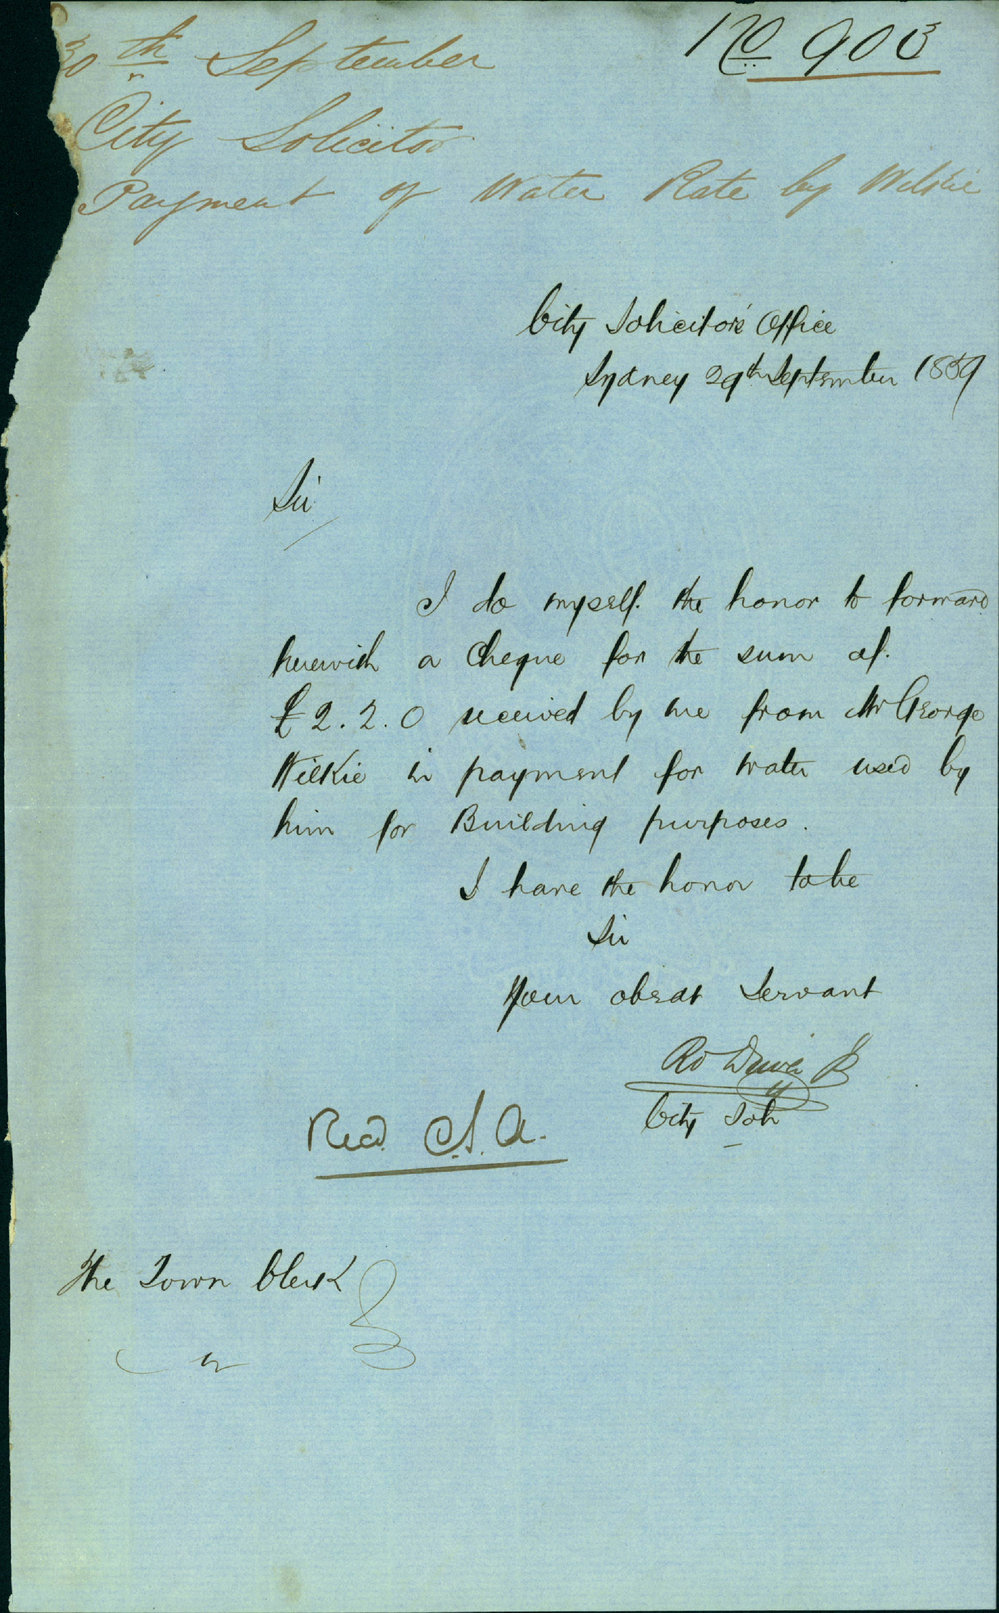 30th September
No 903
City Solicitor
Payment of Water Rate by Wilkie
City Solicitor's Office
Sydney 29th September 1859
Sir
I do myself the honor to forward
herewith a Cheque for the sum of
£2.2.0 received by me from Mr George
Wilkie in payment for water used by
him for Building purposes.
I have the honor to be
Sir
Your obedt Servant
City Solr
Recd. C.S.A.
The Town Clerk